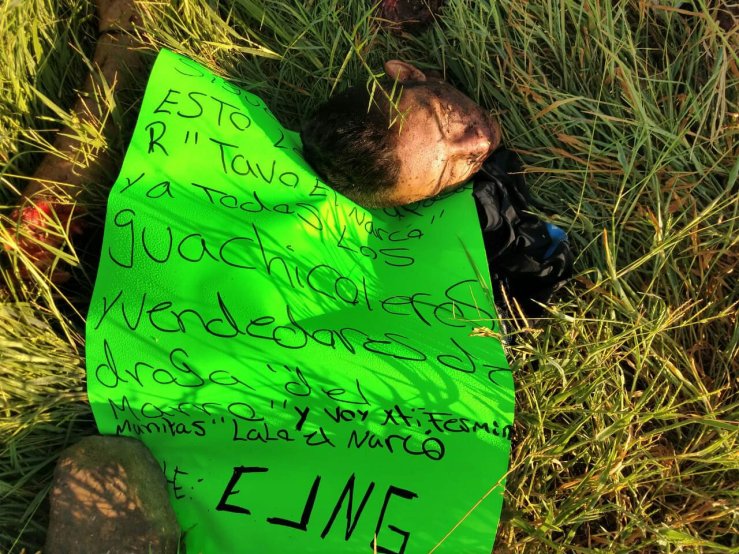 ESTO
R "Tavo
ya Todos Los
guachicoleros
y vendedores de
droga "del
Marro" y voy xti Fermin
Manitas" LaLa El Narco
CJNG